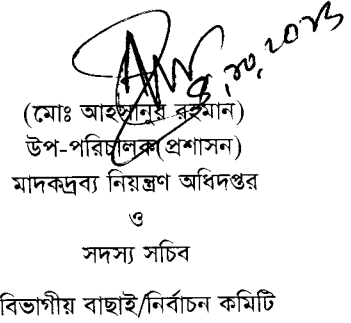 ৪.১০.২০২৩
(মোঃ আহসানুর রহমান)
উপ-পরিচালক(প্রশাসন)
মাদকদ্রব্য নিয়ন্ত্রণ অধিদপ্তর
ও
সদস্য সচিব
বিভাগীয় বাছাই/নির্বাচন কমিটি